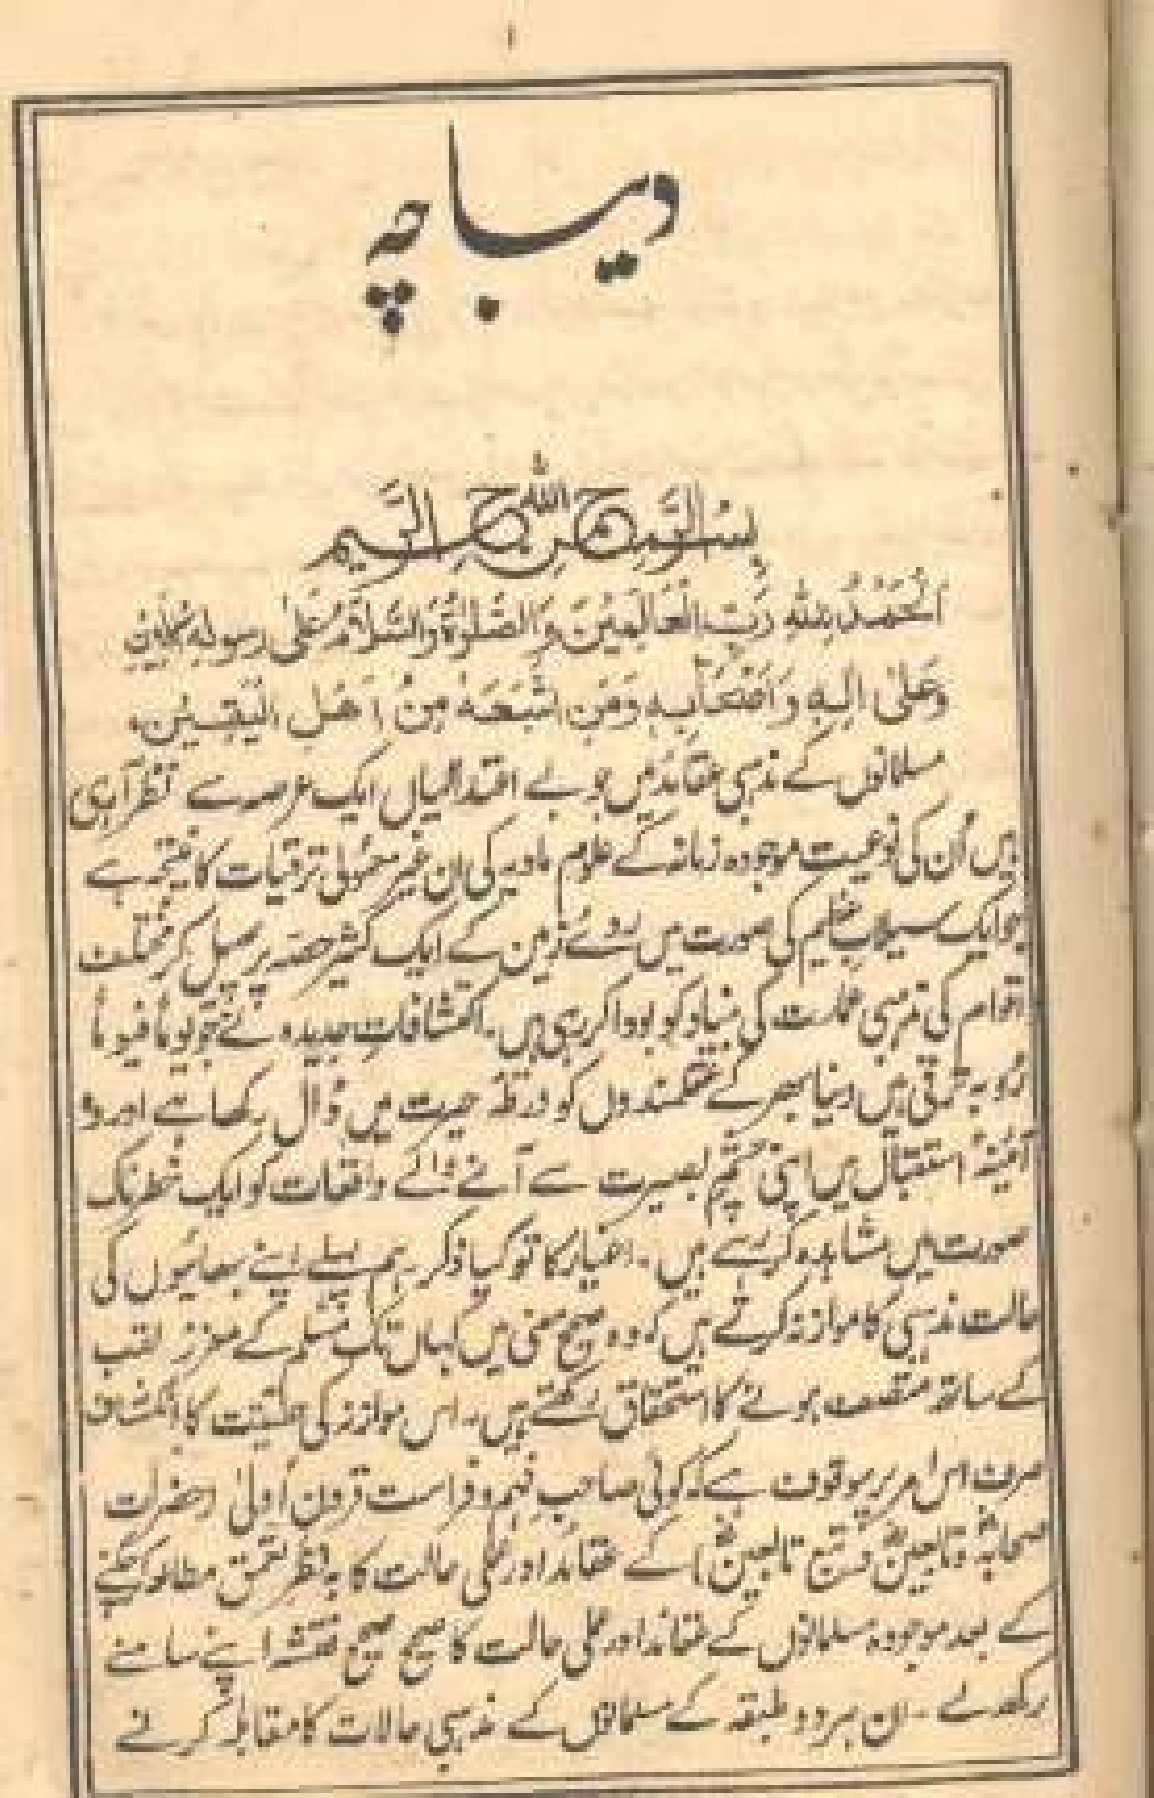 ۱
دیباچہ
بسم اللہ الرحمن الرحیم
اَلْحَمْدُ لِلّٰہِ رَبِّ الْعَالَمِیْنَ وَالصَّلٰوۃُ وَالسَّلَامُ عَلٰی رسولہٖ
وَعَلٰی اٰلِہٖ وَاَصْحَابِہٖ وَمَنِ اتَّبَعَہٗ مِنْ اَھْلِ الْیَقِیْنِ۔
مسلمانوں کے مذہبی عقائد میں جو بے اعتدالیاں ایک عرصہ سے نظر آ رہی
ہیں اُن کی نوعیت موجودہ زمانہ کے علوم مادیہ کی ان غیر معمولی ترقیات کا نتیجہ ہے
جو ایک سیلابِ عظیم کی صورت میں روئے زمین کے ایک کثیر حصّہ پر پھیل کر مختلف
اقوام کی مذہبی عمارت کی بنیاد کو بودا کر رہی ہیں۔ اکتشافاتِ جدیدہ نے جو یوماً فیوماً
رُو بہ ترقی ہیں دنیا بھر کے عقلمندوں کو ورطۂ حیرت میں ڈال رکھا ہے اور وہ
آئینۂ استقبال میں اپنی چشمِ بصیرت سے آنے والے واقعات کو ایک خطرناک
صورت میں مشاہدہ کر رہے ہیں۔ اغیار کا تو کیا ذکر ہم پہلے اپنے بھائیوں کی
حالت مذہبی کا موازنہ کرتے ہیں کہ وہ صحیح معنی میں کہاں تک مُسلم کے معزز لقب
کے ساتھ متصف ہونے کا استحقاق رکھتے ہیں۔ اس موازنہ کی حقیقت کا انکشاف
صرف اس امر پر موقوف ہے کہ کوئی صاحبِ فہم و فراست قرونِ اُولیٰ (حضرات
صحابہؓ و تابعینؓ و تبع تابعینؓ) کے عقائد اور عملی حالت کا بہ نظرِ تعمق مطالعہ کرنے
کے بعد موجودہ مسلمانوں کے عقائد اور عملی حالت کا صحیح صحیح نقشہ اپنے سامنے
رکھ لے۔ ان ہر دو طبقہ کے مسلمانوں کے مذہبی حالات کا مقابلہ کرنے